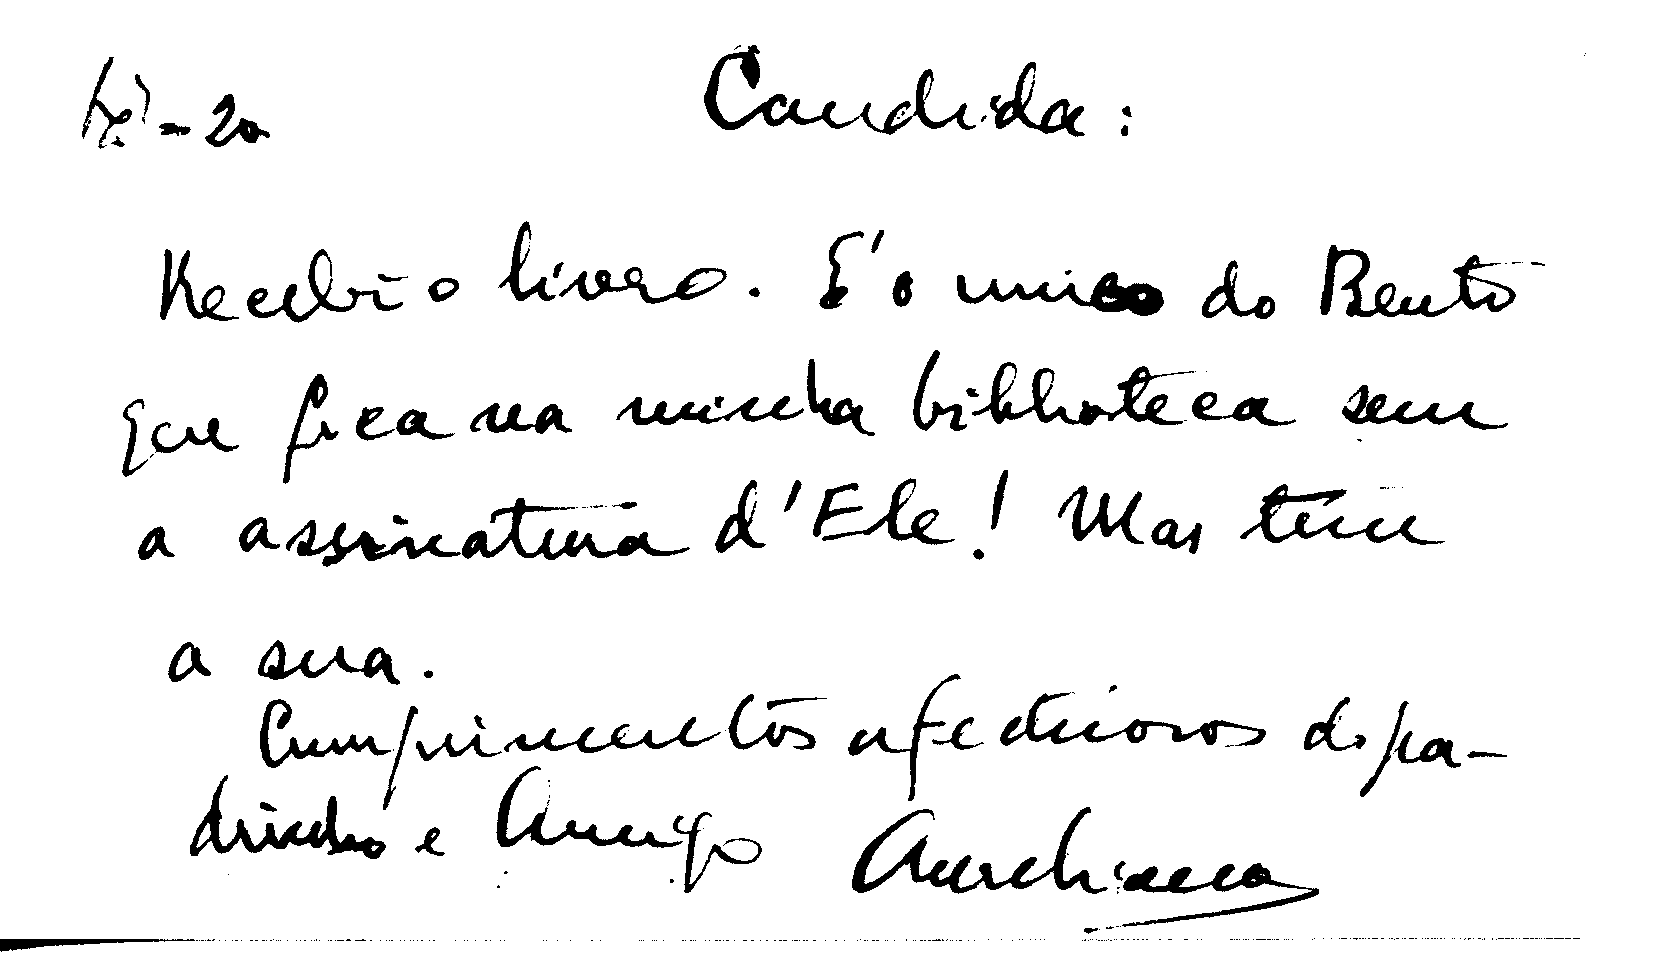 Candida:
Recebi o livro. E' o unico do Bento
que fica na minha biblioteca sem
a assinatura d'Ele! Mas tem
a sua.
Cumprimentos afectuosos do pa-
drinho e Amigo Aureliano